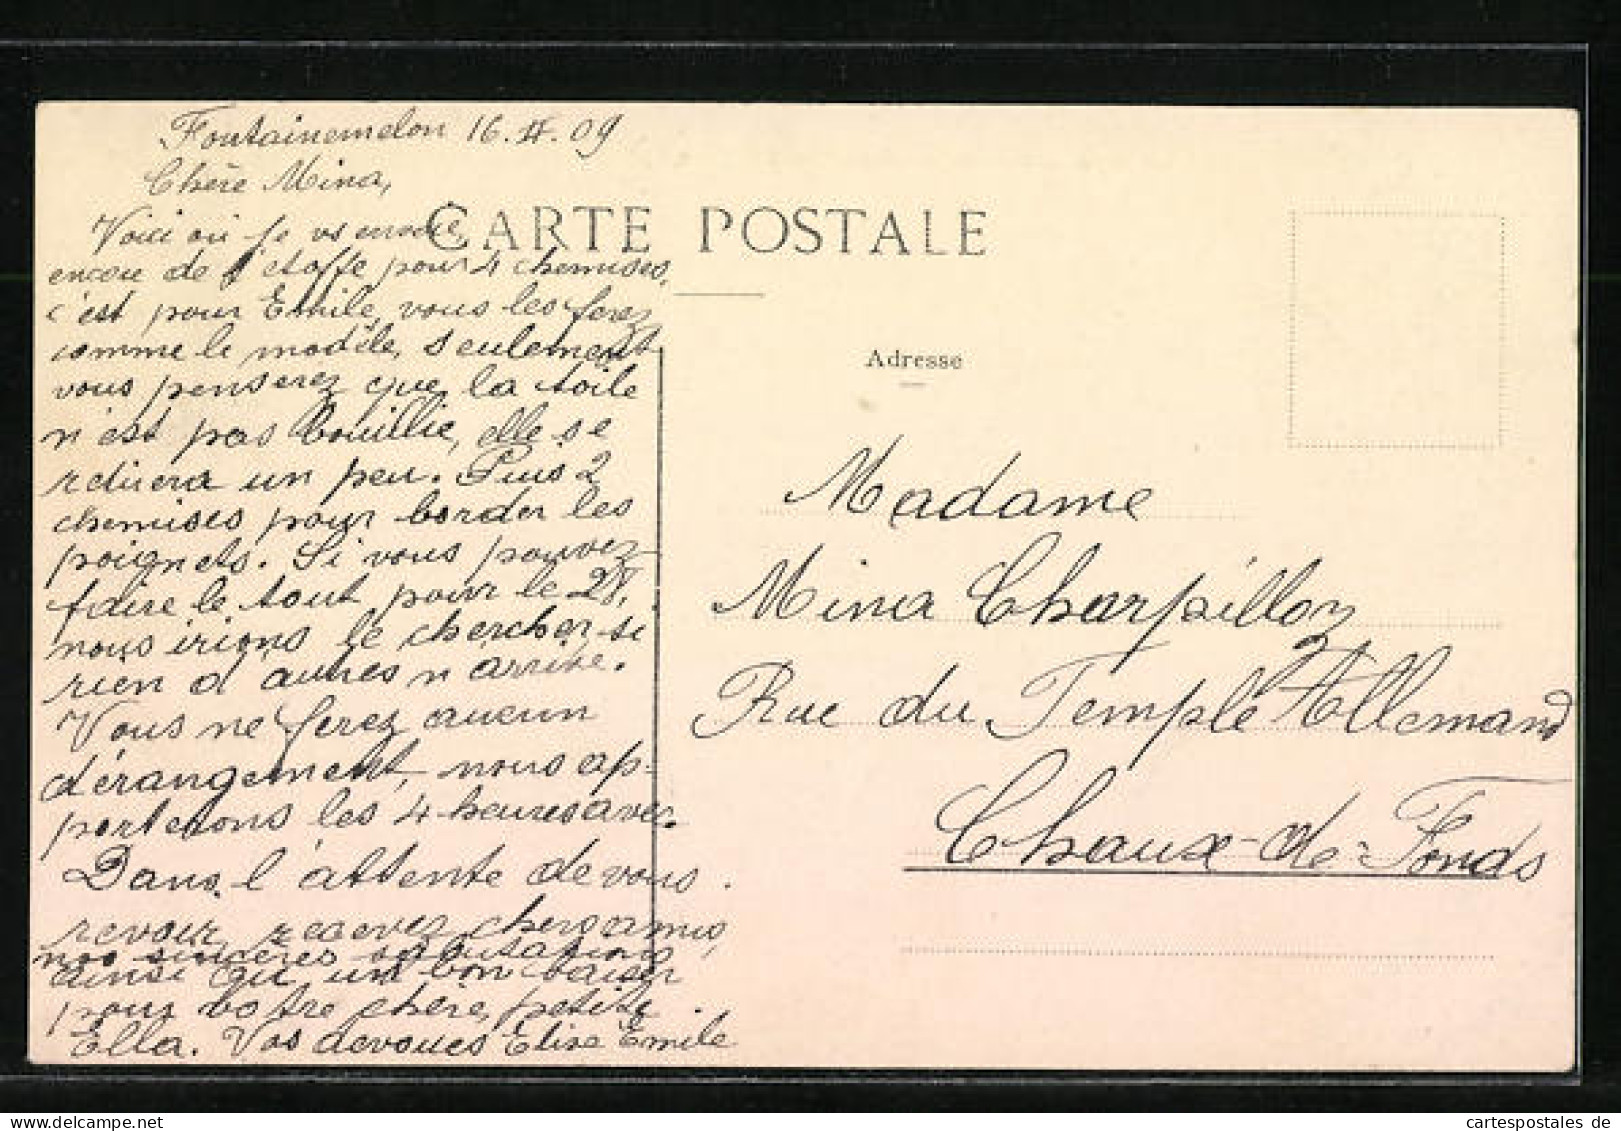 Fontainemelon 16. II. 09
Chère Mina,
Voici où je vs envoie
encore de l'étoffe pour 4 chemises,
c'est pour Emile, vous les ferez
comme le modèle, seulement
vous penserez que la toile
n'est pas bouillie, elle se
retirera un peu. Puis 2
chemises pour border les
poignets. Si vous pouvez
faire le tout pour le 28,
nous irions le chercher si
rien d'autres n'arrive.
Vous ne ferez aucun
dérangement, nous ap-
porterons les 4 heures avec.
Dans l'attente de vous
revoir, recevez chers amis,
nos sincères salutations
ainsi qu'un bon baiser
pour votre chère petite
Ella. Vos dévoués Elise Emile
CARTE POSTALE
Adresse
Madame
Mina Charpillon
Rue du Temple Allemand
Chaux-de-Fonds
cartespostales de